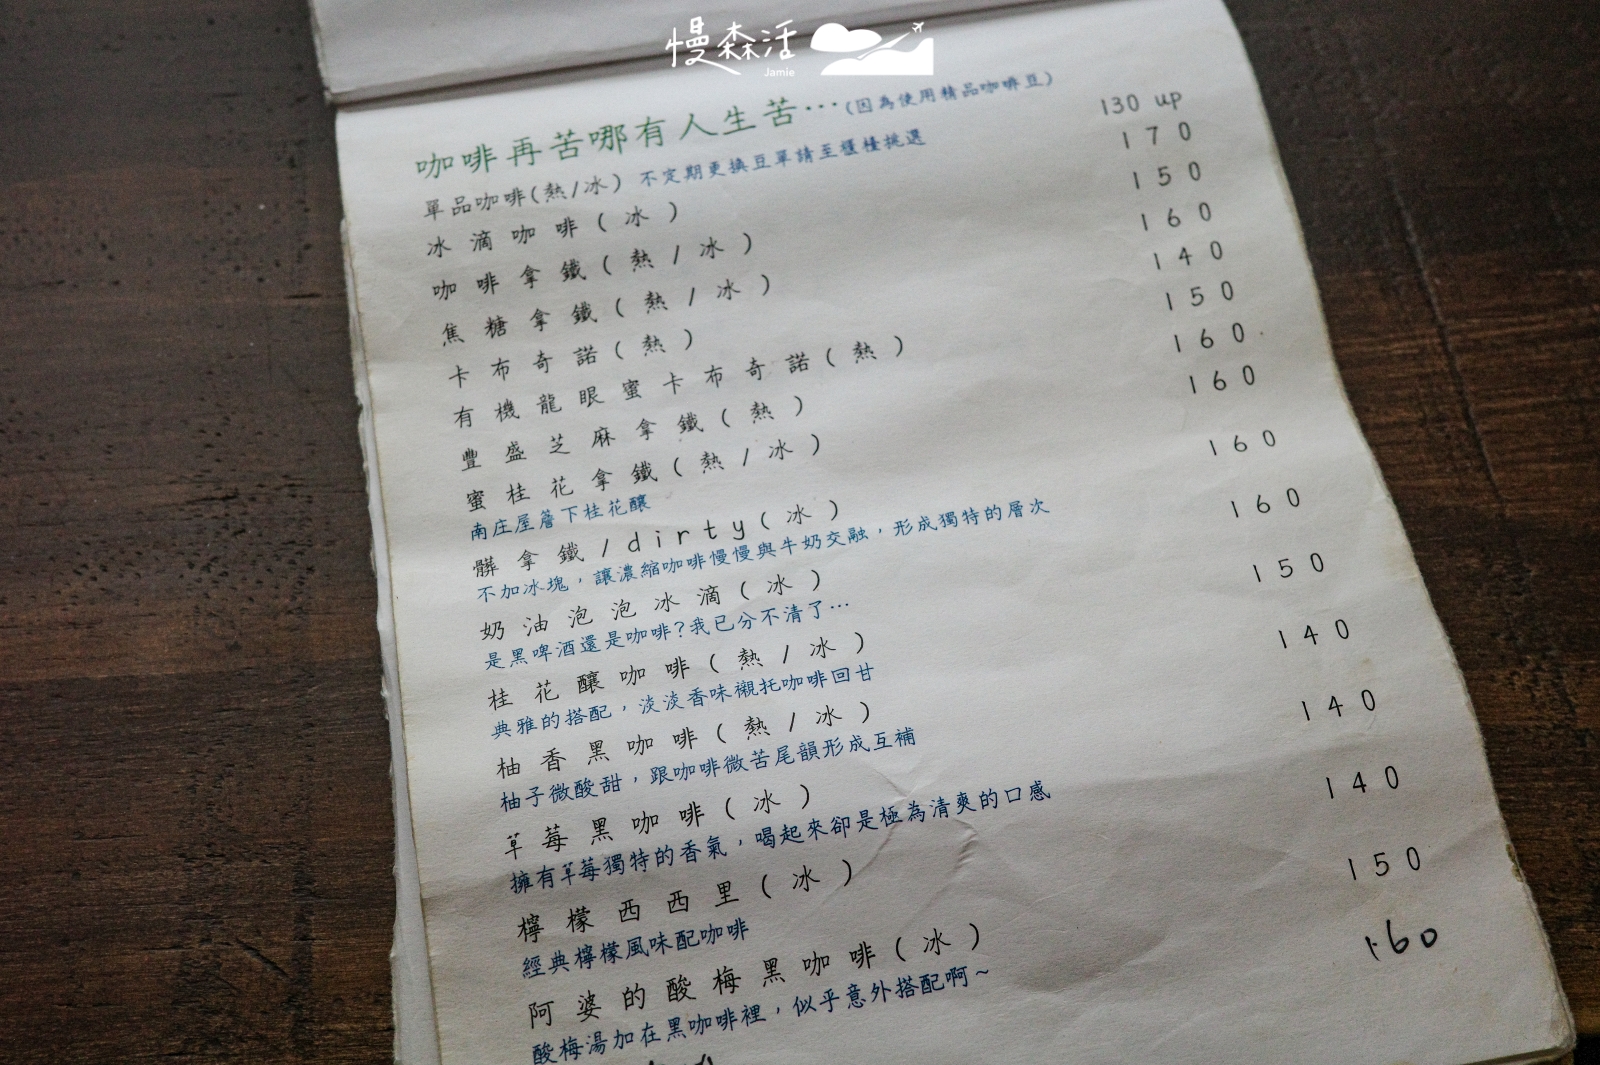 慢森活
Jamie
咖啡再苦哪有人生苦…(因為使用精品咖啡豆)
單品咖啡(熱/冰) 不定期更換豆單請至櫃檯挑選 130 up
冰滴咖啡(冰) 170
咖啡拿鐵(熱/冰) 150
焦糖拿鐵(熱/冰) 160
卡布奇諾(熱) 140
有機龍眼蜜卡布奇諾(熱) 150
豐盛芝麻拿鐵(熱) 160
蜜桂花拿鐵(熱/冰) 160
南庄屋簷下桂花釀
髒拿鐵/dirty(冰) 160
不加冰塊，讓濃縮咖啡慢慢與牛奶交融，形成獨特的層次
奶油泡泡冰滴(冰) 160
是黑啤酒還是咖啡?我已分不清了…
桂花釀咖啡(熱/冰) 150
典雅的搭配，淡淡香味襯托咖啡回甘
柚香黑咖啡(熱/冰) 140
柚子微酸甜，跟咖啡微苦尾韻形成互補
草莓黑咖啡(冰) 140
擁有草莓獨特的香氣，喝起來卻是極為清爽的口感
檸檬西西里(冰) 140
經典檸檬風味配咖啡
阿婆的酸梅黑咖啡(冰) 150
酸梅湯加在黑咖啡裡，似乎意外搭配啊~
160